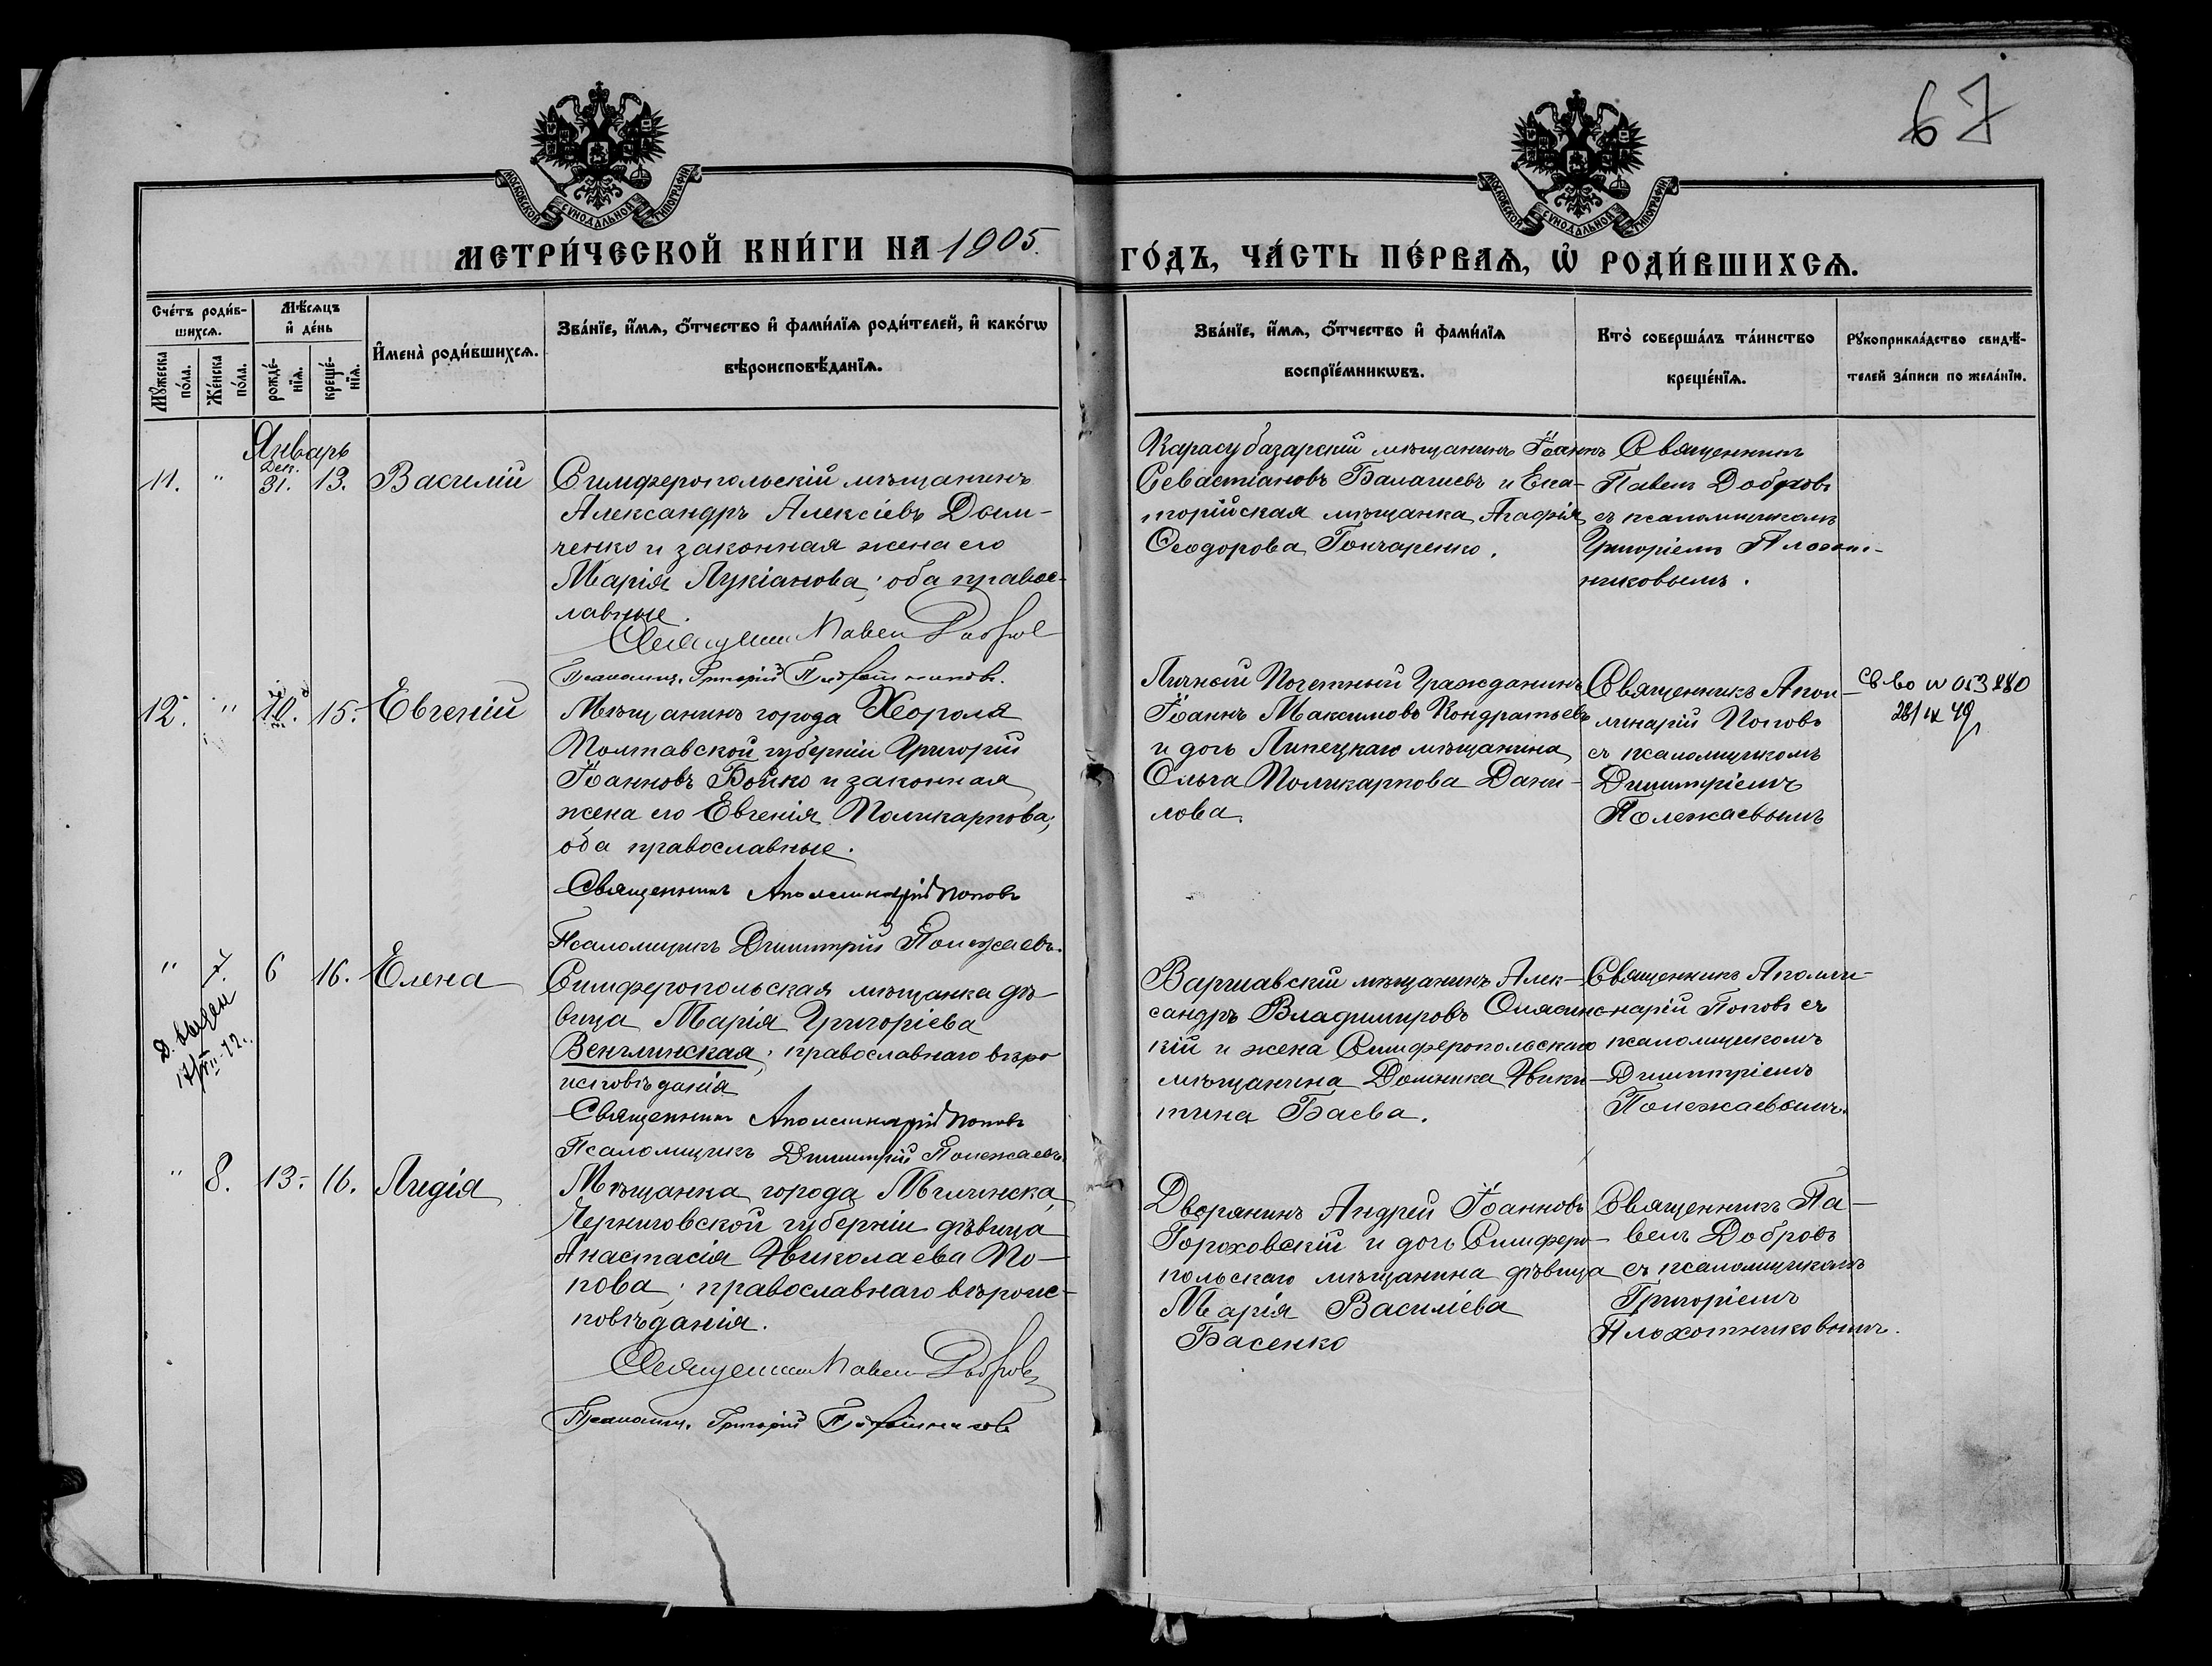 67
МОСКОВСКОЙ СѴНОДАЛЬНОЙ ТИПОГРАФІИ
МОСКОВСКОЙ СѴНОДАЛЬНОЙ ТИПОГРАФІИ
МЕТРИ́ЧЕСКОЙ КНИ́ГИ НА 1905. ГО́ДЪ, ЧА́СТЬ ПЕ́РВАѦ, Ѡ҆ РОДИ́ВШИХСѦ.
Сче́тъ роди́в-
шихсѧ.
Мꙋ́жеска по́ла.
Же́нска по́ла.
Мѣ́сѧцъ
и҆ де́нь
рожде́-
нїѧ.
креще́-
нїѧ.
И҆мена̀ роди́вшихсѧ.
Зва́нїе, и҆́мѧ, ѻ҆́тчество и҆ фами́лїѧ роди́телей, и҆ како́гѡ
вѣроисповѣ́данїѧ.
Зва́нїе, и҆́мѧ, ѻ҆́тчество и҆ фами́лїѧ
воспрїе́мникѡвъ.
Кто̀ соверша́лъ та́инство
креще́нїѧ.
Рꙋкоприкла́дство свидѣ́-
телей за́писи по жела́нїю.
Январь
11. " Дек. 31. 13. Василій
Симферопольскій мѣщанинъ
Александръ Алексіевъ Дом-
ченко и законная жена его
Марія Лукіанова; оба правос-
лавные.
Священникъ Павелъ Добровъ
Псаломщ. Григорій Плотниковъ.
Карасубазарскій мѣщанинъ Іоаннъ
Севастіановъ Балагиевъ и Ева-
торійская мѣщанка Агафія
Ѳеодорова Гончаренко.
Священникъ
Павелъ Добровъ
съ псаломщикомъ
Григоріемъ Плохот-
никовымъ.
12. " 10. 15. Евгеній
Мѣщанинъ города Хорола
Полтавской губерніи Григорій
Іоанновъ Бойко и законная
жена его Евгенія Поликарпова;
оба православные.
Священникъ Аполлинарій Поповъ
Псаломщикъ Димитрій Полежаевъ.
Личный Почетный Гражданинъ
Іоаннъ Максимовъ Кондратьевъ
и дочь Липецкаго мѣщанина
Ольга Поликарпова Дани-
лова.
Священникъ Апол-
линарій Поповъ
съ псаломщикомъ
Димитріемъ
Полежаевымъ
Св-во N 053280
28/IX 49
" 7. 6 16. Елена
Симферопольская мѣщанка дѣ-
вица Марія Григоріева
Венглинская; православнаго вѣро
исповѣданія
Священникъ Аполлинарій Поповъ
Псаломщикъ Димитрій Полежаевъ.
Варшавскій мѣщанинъ Алек-
сандръ Владимировъ
кій и жена Симферопольскаго
мѣщанина Домника Ники-
тина Баева.
Священникъ Аполли-
нарій Поповъ съ
псаломщикомъ
Димитріемъ
Полежаевымъ.
" 8. 13. 16. Лидія
Мѣщанка города Мглинска
Черниговской губерніи дѣвица
Анастасія Николаева По-
пова; православнаго вѣроис-
повѣданія.
Священникъ Павелъ Добровъ
Псаломщ. Григорій Плотниковъ
Дворянинъ Андрей Іоанновъ
Гороховскій и дочь Симферо-
польскаго мѣщанина дѣвица
Марія Василіева
Басенко
Священникъ Па-
велъ Добровъ
съ псаломщикомъ
Григоріемъ
Плохотниковымъ.